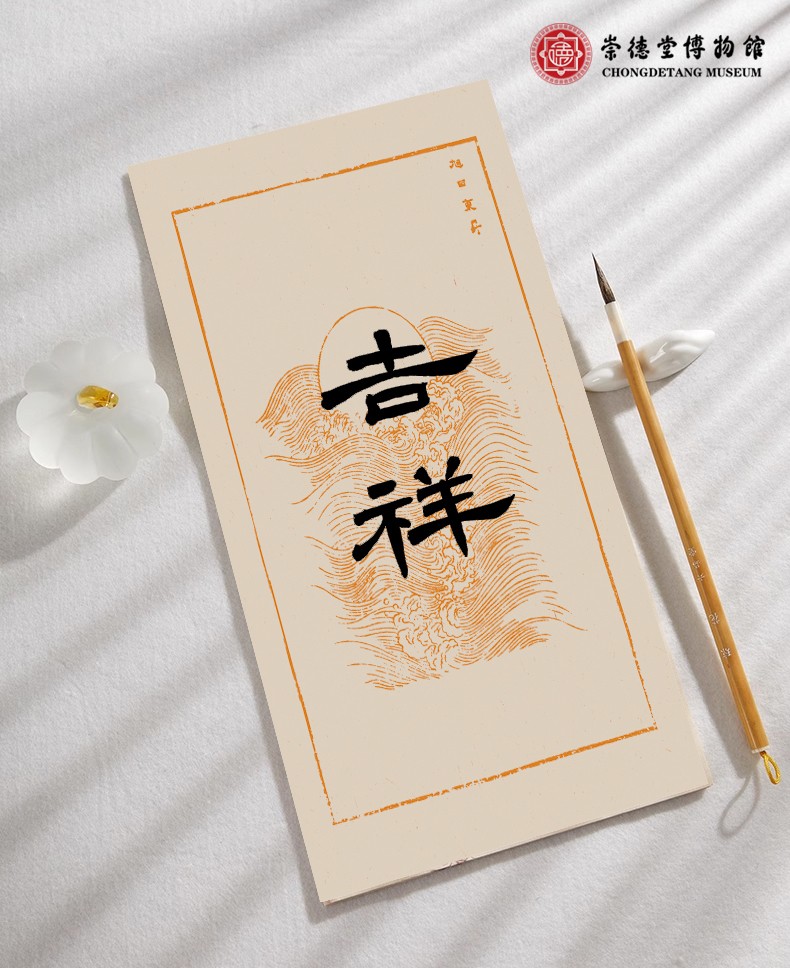 崇德堂博物館
CHONGDETANG MUSEUM
旭日東昇
吉祥